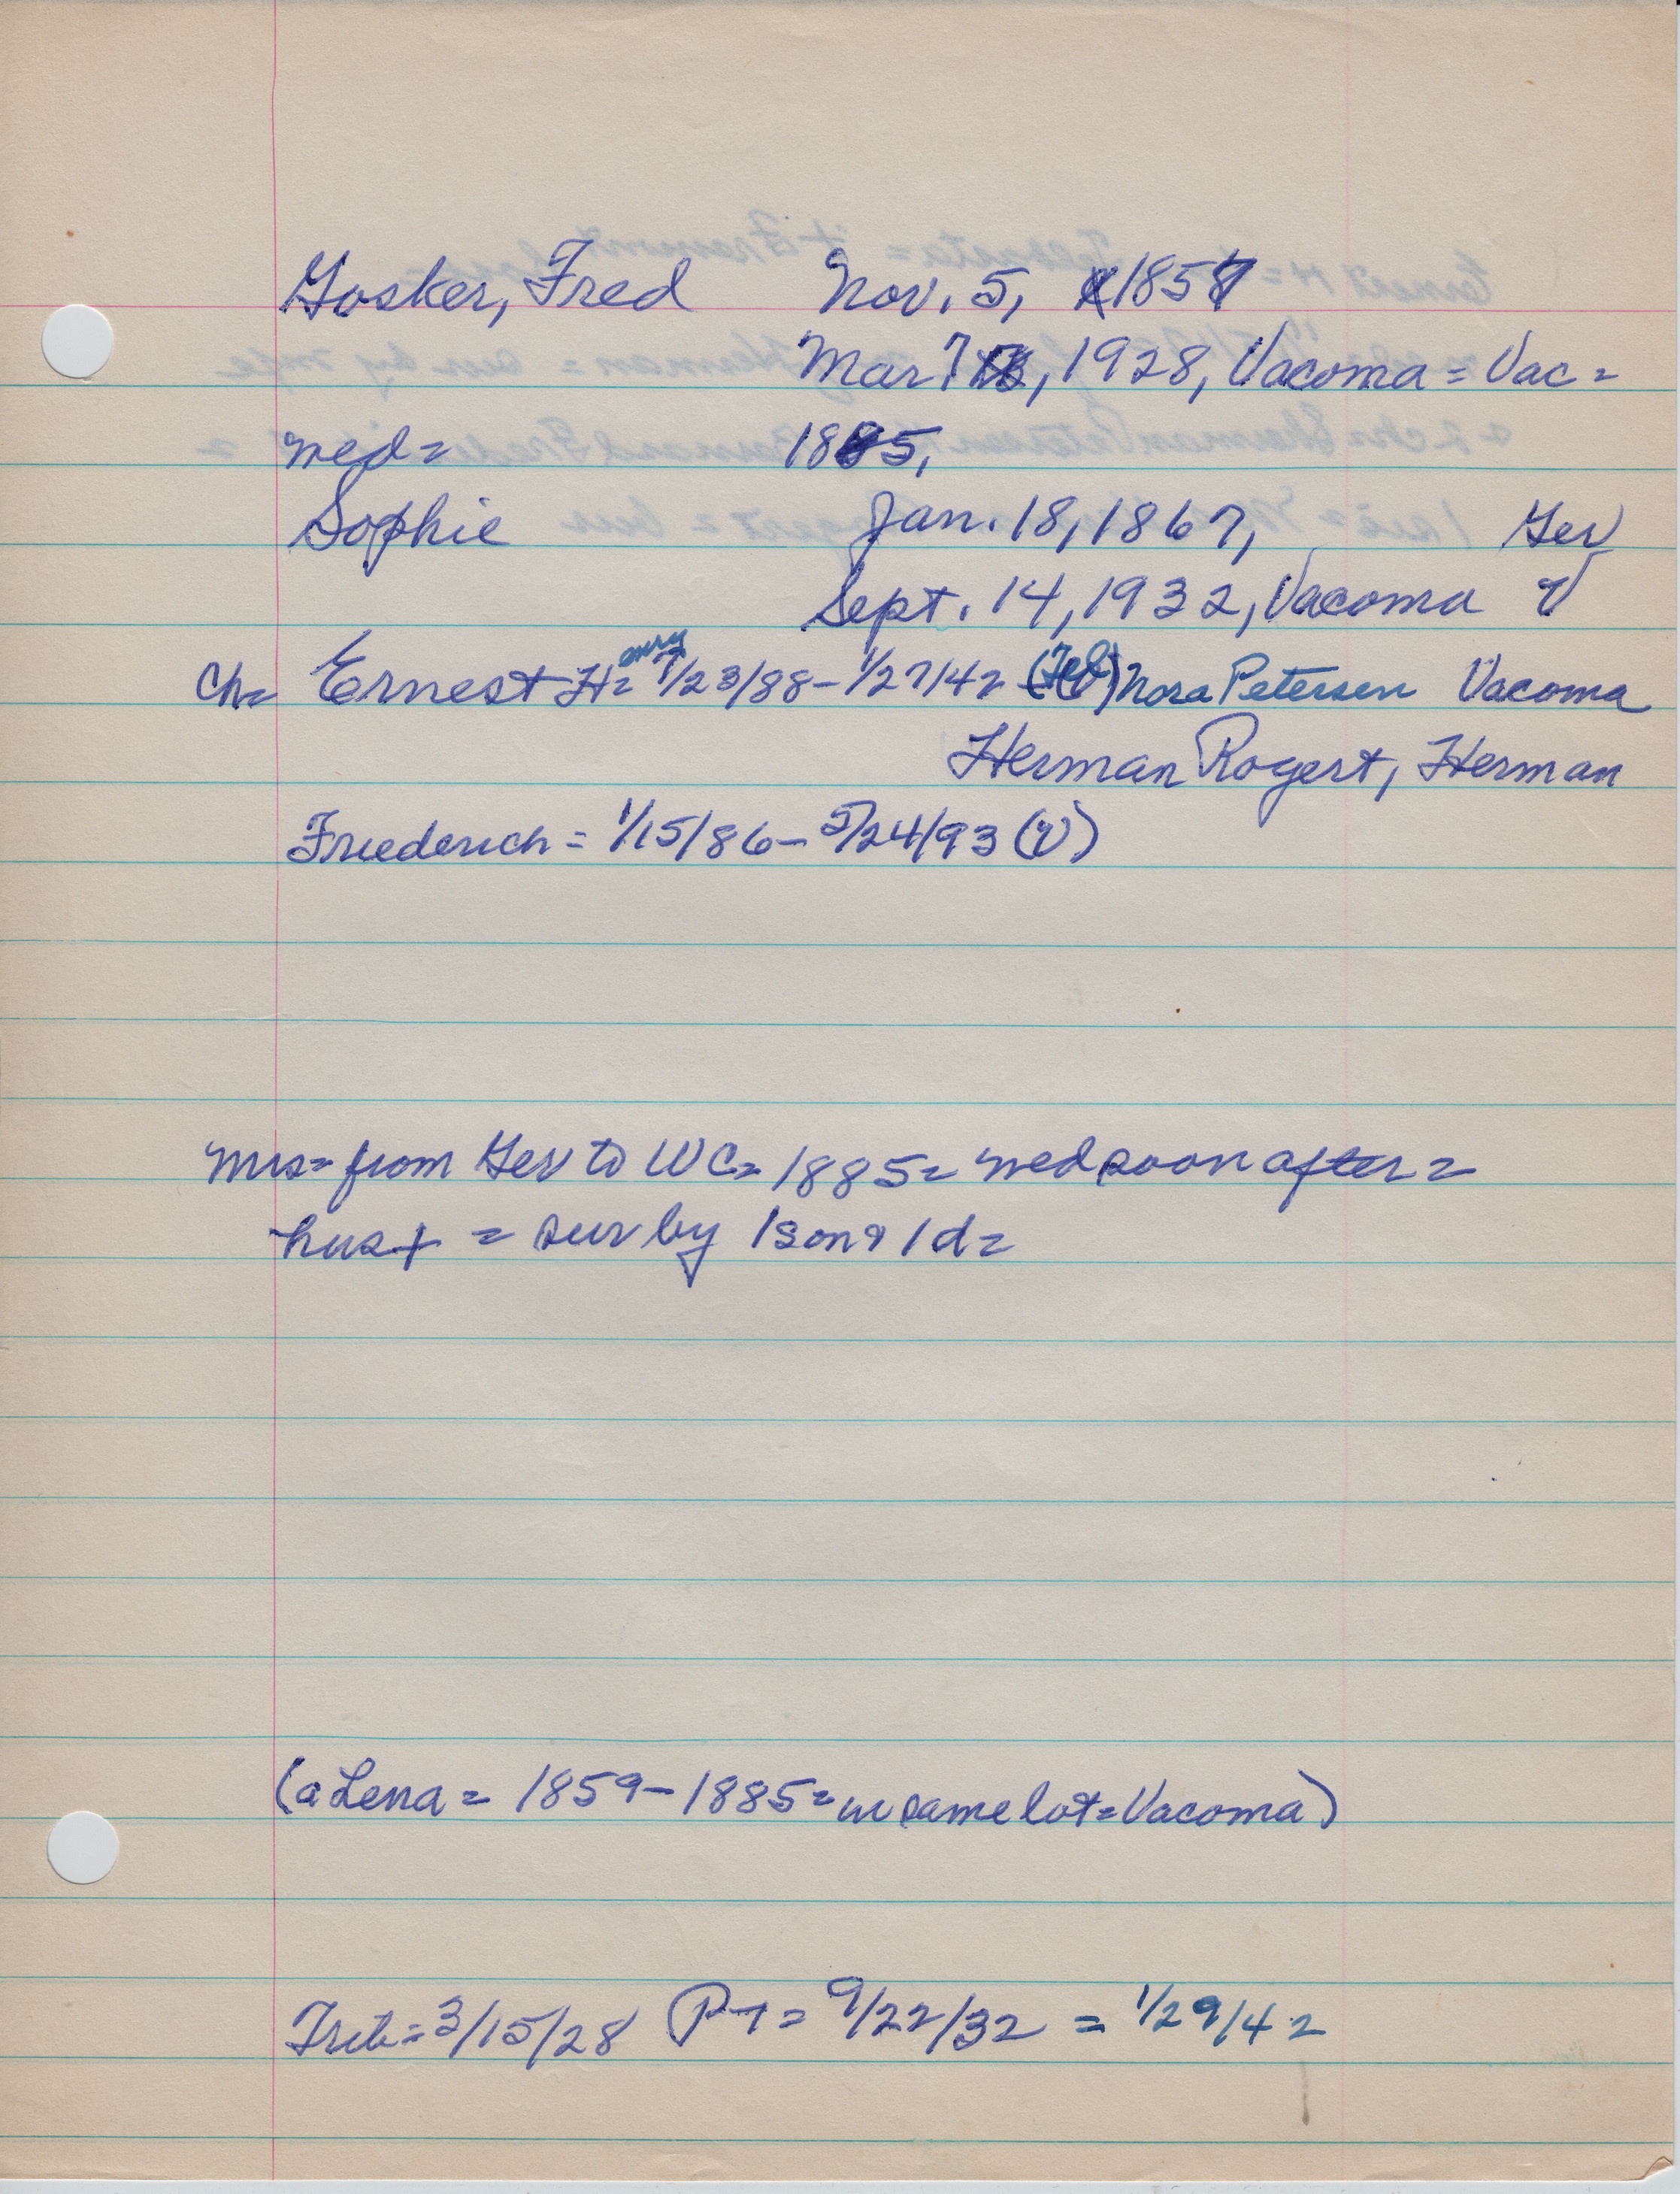 Gosker, Fred Nov. 5, 1857
Mar 7, 1928, Vacoma = Vac =
med = 1885,
Sophie Jan. 18, 1867, Ger
Sept. 14, 1932, Vacoma V
Ch = Ernest H = 7/23/88 - 1/27/42 (Feb) Nora Petersen Vacoma
Herman Rogert, Herman
Friederich = 1/15/86 - 5/24/93 (V)
Mrs = from Ger to WC = 1885 = med soon after =
hus + = sur by 1 son & 1 d =
(a Lena = 1859 - 1885 = in same lot = Vacoma)
Trib = 3/15/28 PT = 9/22/32 = 1/29/42